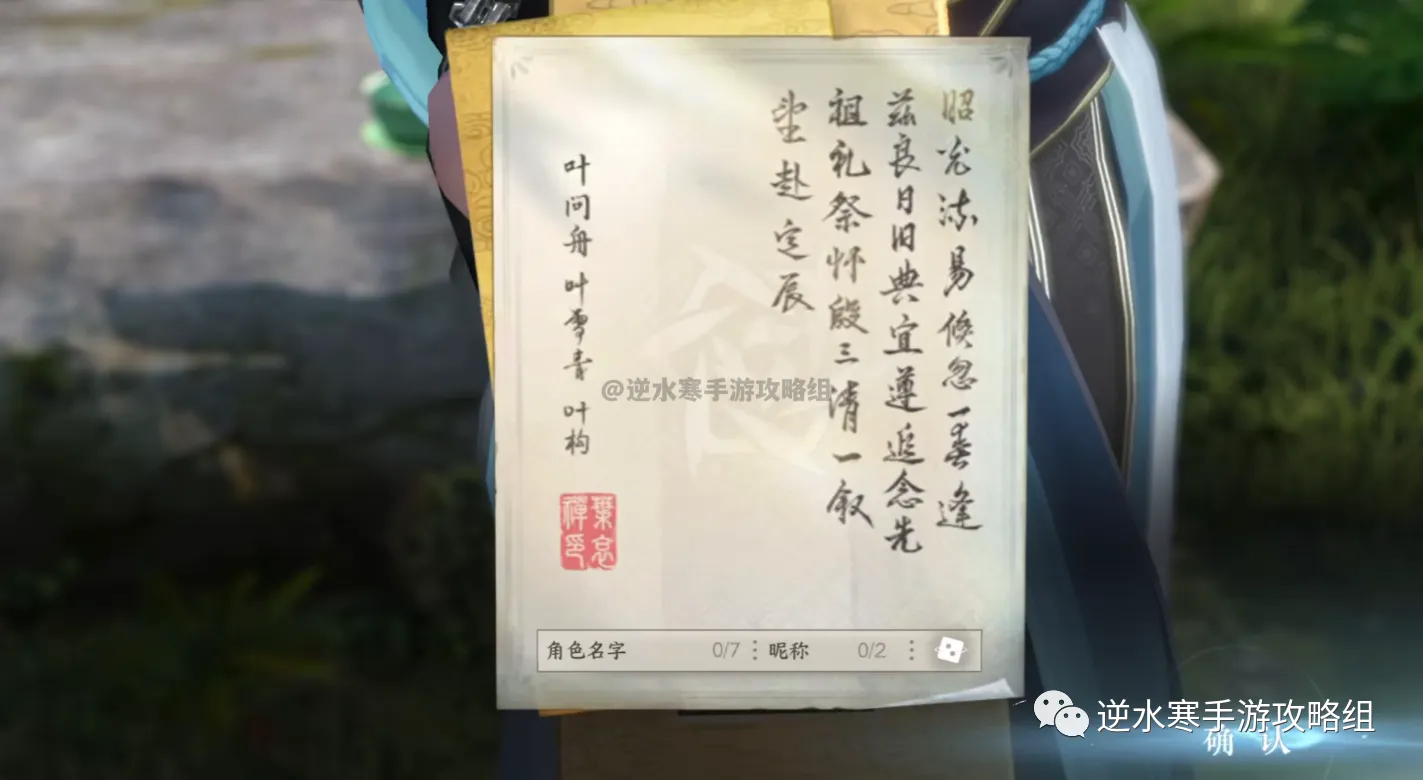 昭光流易倏忽一春逢
兹良日旧典宜遵追念先
祖礼祭怀殷三清一叙
望赴定辰
叶问舟 叶雪青 叶构
@逆水寒手游攻略组
角色名字 0/7 昵称 0/2
逆水寒手游攻略组
确认